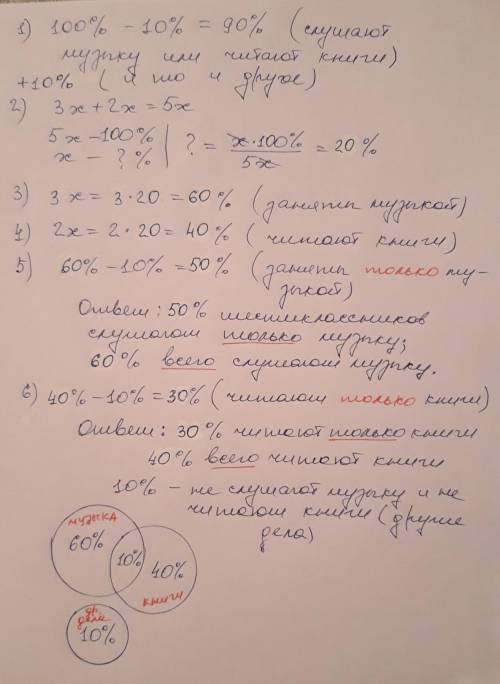 1) 100% - 10% = 90% (слушают
музыку или читают книги)
+10% (и то и другое)
2) 3x + 2x = 5x
5x - 100%
x - ? %
? = x·100% / 5x = 20%
3) 3x = 3·20 = 60% (заняты музыкой)
4) 2x = 2·20 = 40% (читают книги)
5) 60% - 10% = 50% (заняты только му-
зыкой)
Ответ: 50% шестиклассников
слушают только музыку;
60% всего слушают музыку.
6) 40% - 10% = 30% (читают только книги)
Ответ: 30% читают только книги
40% всего читают книги
10% - не слушают музыку и не
читают книги (другие
дела)
музыка
60%
10%
40%
книги
др.
дела
10%